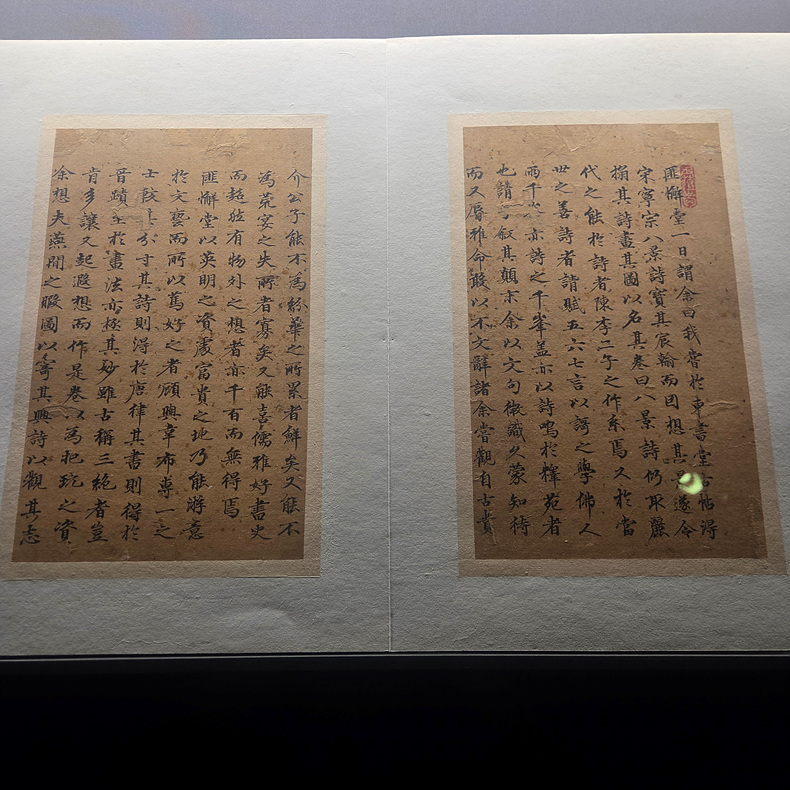 匪懈堂一日謂余曰我嘗於東書堂古帖得
宋寧宗八景詩寶其宸翰而因想其遂令
搨其詩畫其圖以名其卷曰八景詩仍取麗
代之能於詩者陳李二子之作系焉又於當
世之善詩者請賦五六七言以謌之學佛人
雨千峯亦詩之千峯蓋亦以詩鳴於禪苑者
也請叙其顛末余以文句儆識久蒙知待
而又辱雅命敢以不文辭諸余嘗觀自古貴
介公子能不為紛華之所累者鮮矣又能不
為荒宴之失所者寡矣又能喜儒雅好書史
而超然有物外之想者亦千百而無得焉
匪懈堂以英明之資處富貴之地乃能游意
於文藝而所以篤好之者顧與韋布專一之
士較分寸其詩則得於唐律其書則得於
晉蹟至於畫法亦極其妙雖古稱三絶者豈
肯多讓又起遐想而作是卷以為把玩之資
余想夫燕閒之暇圖以寄其興詩以觀其志